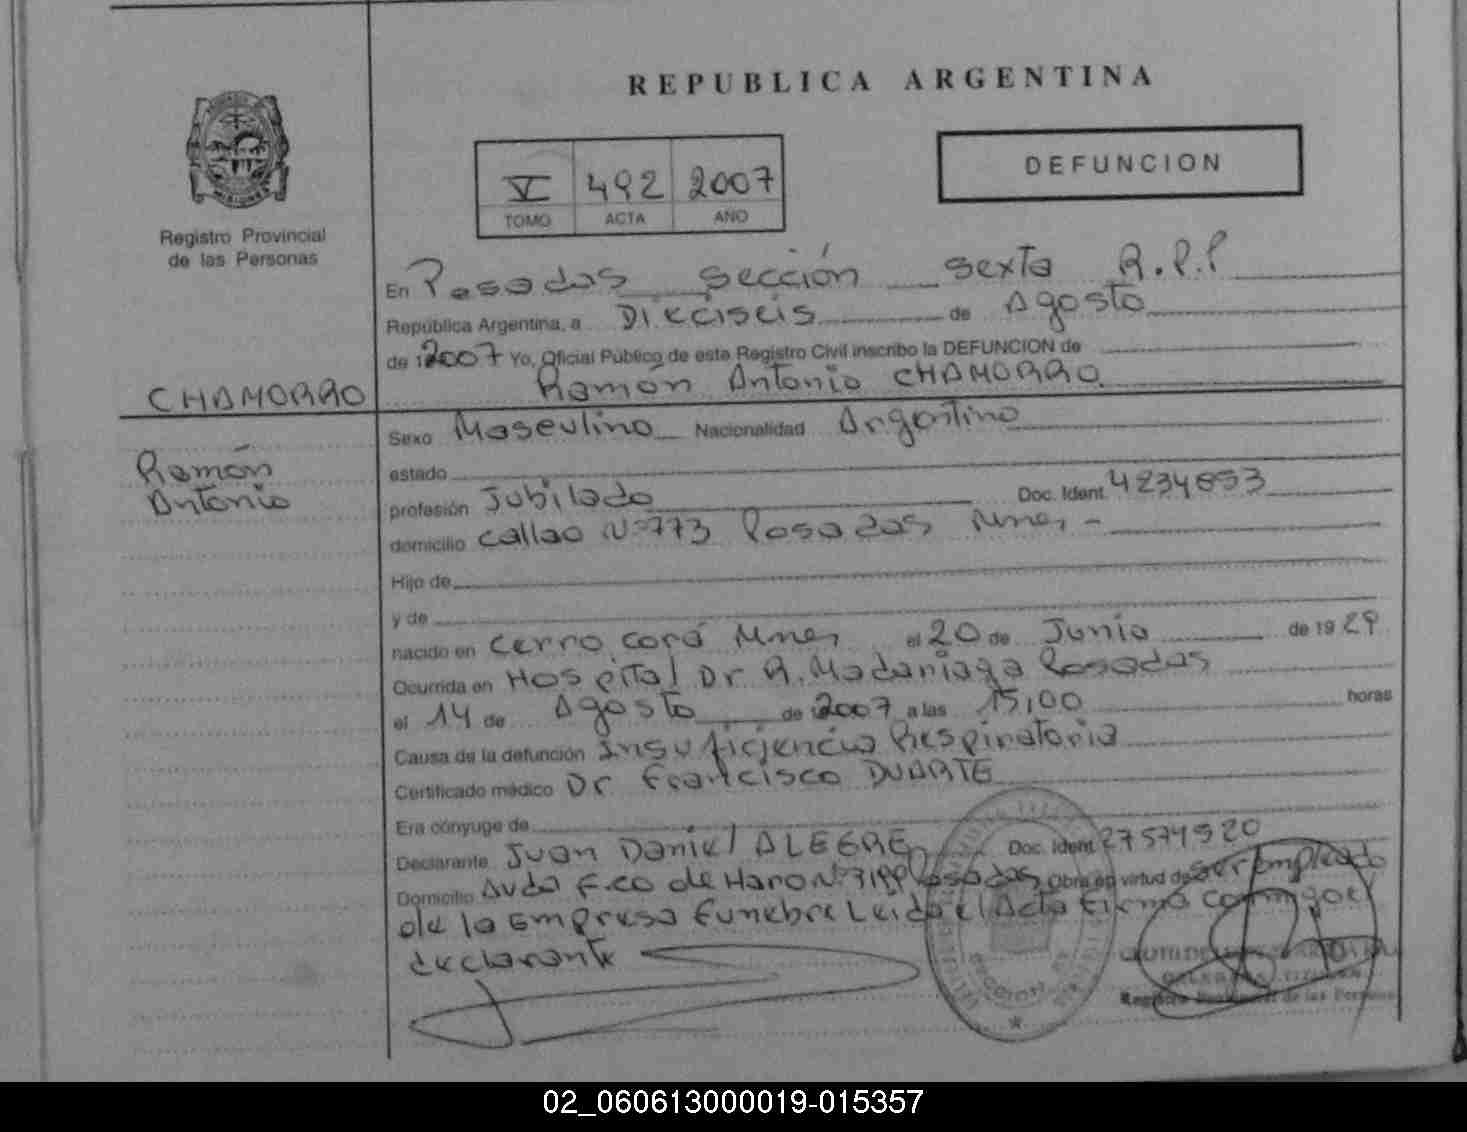 REPUBLICA ARGENTINA
DEFUNCION
V 492 2007
TOMO ACTA AÑO
Registro Provincial
de las Personas
En Posadas sección sexta R.P.P
República Argentina, a Dieciseis de Agosto
de 2007 Yo, Oficial Público de este Registro Civil inscribo la DEFUNCION de
Ramón Antonio CHAMORRO
CHAMORRO
Ramón
Antonio
Sexo Masculino Nacionalidad Argentino
estado
profesión Jubilado Doc. Ident. 4234853
domicilio callao Nº 773 Posadas Mnes -
Hijo de
y de
nacido en Cerro corá Mnes el 20 de Junio de 1929
Ocurrida en Hospital Dr R. Madariaga Posadas
el 14 de Agosto de 2007 a las 15,00 horas
Causa de la defunción Insuficiencia Respiratoria
Certificado médico Dr Francisco DUARTE
Era cónyuge de
Declarante Juan Daniel ALEGRE Doc. Ident. 27574920
Domicilio Avda F.co de Haro Nº Posadas Obra en virtud de ser empleado
de la Empresa Funebre Leida el Acta firma conmigo el
declarante
02_060613000019-015357